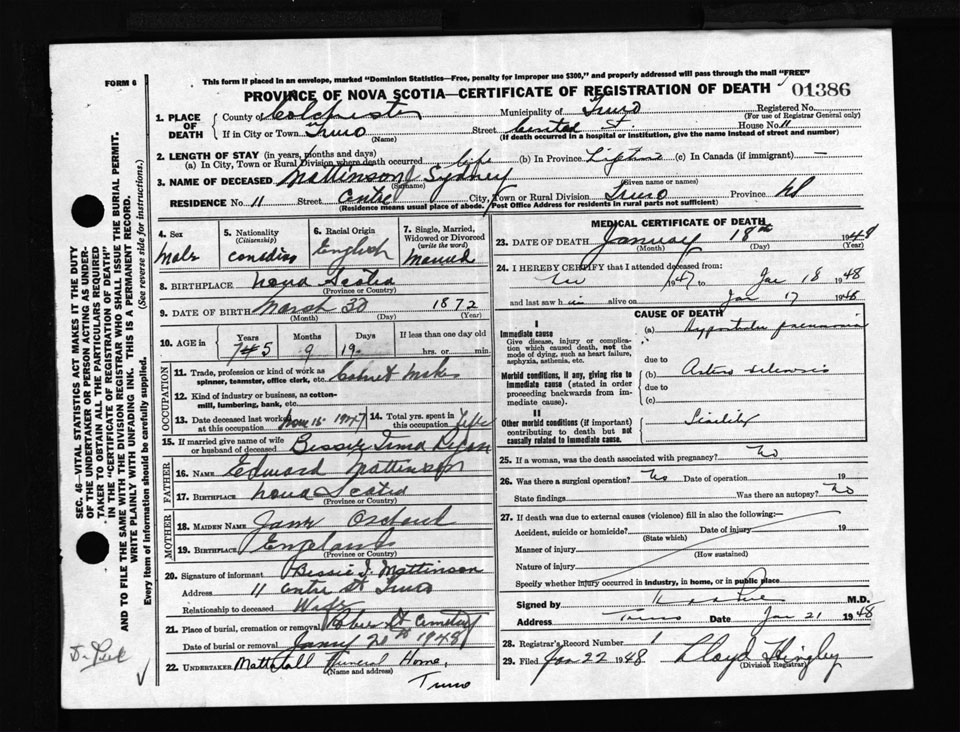 FORM 6
This form if placed in an envelope, marked "Dominion Statistics—Free, penalty for improper use $300," and properly addressed will pass through the mail "FREE"
PROVINCE OF NOVA SCOTIA—CERTIFICATE OF REGISTRATION OF DEATH 01386
1. PLACE OF DEATH
County of Colchester Municipality of Truro Registered No.
(For use of Registrar General only)
If in City or Town Truro Street House No. 11
(Name) (If death occurred in a hospital or institution, give the name instead of street and number)
2. LENGTH OF STAY (in years, months and days)
(a) In City, Town or Rural Division where death occurred life (b) In Province Lifetime (c) In Canada (if immigrant) —
3. NAME OF DECEASED Mattinson Sydney
(Surname) (Given name or names)
RESIDENCE No. 11 Street Centre City, Town or Rural Division Truro Province NS
(Residence means usual place of abode. Post Office Address for residents in rural parts not sufficient)
4. Sex
Male
5. Nationality
(Citizenship)
Canadian
6. Racial Origin
English
7. Single, Married, Widowed or Divorced
(write the word)
Married
8. BIRTHPLACE Nova Scotia
(Province or Country)
9. DATE OF BIRTH March 30 1872
(Month) (Day) (Year)
10. AGE in
Years Months Days If less than one day old
75 9 19 hrs. or min.
OCCUPATION
11. Trade, profession or kind of work as spinner, teamster, office clerk, etc. Cabinet Maker
12. Kind of industry or business, as cotton-mill, lumbering, bank, etc.
13. Date deceased last worked at this occupation 1947
14. Total yrs. spent in this occupation Life
15. If married give name of wife or husband of deceased Bessie
FATHER
16. NAME Edward Mattinson
17. BIRTHPLACE Nova Scotia
(Province or Country)
MOTHER
18. MAIDEN NAME Jane Orchard
19. BIRTHPLACE England
(Province or Country)
20. Signature of informant Bessie I. Mattinson
Address 11 Truro
Relationship to deceased Wife
21. Place of burial, cremation or removal Cemetery
Date of burial or removal Jany 20th 1948
22. UNDERTAKER Mattatall Funeral Home,
(Name and address)
Truro
MEDICAL CERTIFICATE OF DEATH
23. DATE OF DEATH January 18th 1948
(Month) (Day) (Year)
24. I HEREBY CERTIFY that I attended deceased from:
1947 to Jan 18 1948
and last saw h im alive on Jan 17 1948
CAUSE OF DEATH
I
Immediate cause
Give disease, injury or complication which caused death, not the mode of dying, such as heart failure, asphyxia, asthenia, etc.
(a) Hypostatic pneumonia
due to
Morbid conditions, if any, giving rise to immediate cause (stated in order proceeding backwards from immediate cause).
(b) Arterio sclerosis
due to
(c)
II
Other morbid conditions (if important) contributing to death but not causally related to immediate cause.
Senility
25. If a woman, was the death associated with pregnancy? No
26. Was there a surgical operation? No Date of operation 19
State findings Was there an autopsy? No
27. If death was due to external causes (violence) fill in also the following:—
Accident, suicide or homicide? Date of injury 19
(State which)
Manner of injury
(How sustained)
Nature of injury
Specify whether injury occurred in industry, in home, or in public place
Signed by M.D.
Address Truro Date Jan 21 1948
28. Registrar's Record Number 1
29. Filed Jan 22 1948 Lloyd Hingley
(Division Registrar)
SEC. 46—VITAL STATISTICS ACT MAKES IT THE DUTY
OF THE UNDERTAKER OR PERSON ACTING AS UNDER-
TAKER TO OBTAIN ALL THE PARTICULARS REQUIRED
IN THE "CERTIFICATE OF REGISTRATION OF DEATH"
AND TO FILE THE SAME WITH THE DIVISION REGISTRAR WHO SHALL ISSUE THE BURIAL PERMIT.
WRITE PLAINLY WITH UNFADING INK. THIS IS A PERMANENT RECORD.
Every item of information should be carefully supplied. (See reverse side for instructions.)